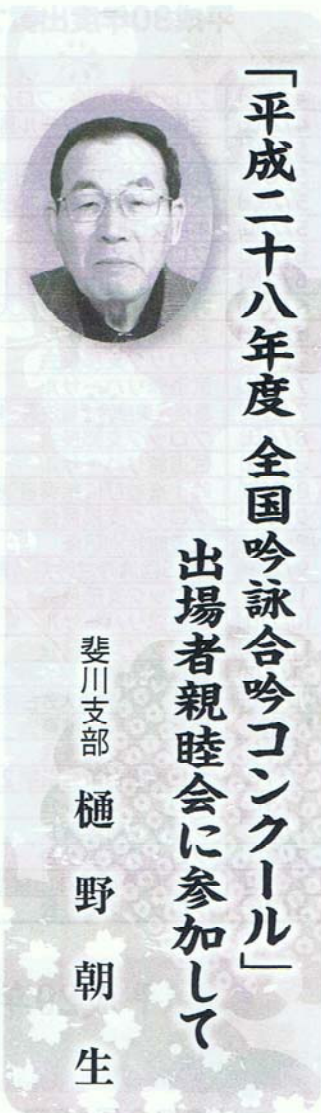 「平成二十八年度 全国吟詠合吟コンクール」
出場者親睦会に参加して
斐川支部 樋野朝生